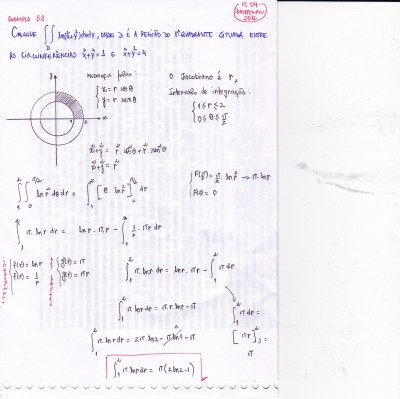 EXEMPLO 5.8
15.09
2012
CALCULE ∫∫ ln(x²+y²)dxdy, ONDE D É A REGIÃO DO 1º QUADRANTE SITUADA ENTRE
D
AS CIRCUNFERÊNCIAS x²+y²=1 E x²+y²=4
mudança polar:
{ x = r cosθ
{ y = r senθ
O Jacobiano é r,
Intervalo de integração:
{ 1 ≤ r ≤ 2
{ 0 ≤ θ ≤ π/2
x²+y² = r² cos²θ + r² sen²θ
x²+y² = r²
∫₁² ∫₀^π/2 ln r² dθ dr = ∫₁² [θ. ln r²]₀^π/2 dr
{ F(π/2) = π/2 . ln r² → π. ln r
{ F(0) = 0
∫₁² π. ln r dr = ln r. π r − ∫₁² 1/r . πr dr
{ f(r) = ln r
{ f'(r) = 1/r
{ g'(r) = π
{ g(r) = πr
∫₁² π. ln r dr = ln r. πr − ∫₁² π dr
∫₁² π. ln r dr = π.r. ln r − π
∫₁² π dr =
[πr]₁² =
π
∫₁² π ln r dr = 2π. ln 2 − π. ln 1 − π
∫₁² π. ln r dr = π(2 ln 2 − 1)